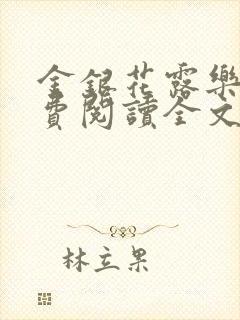 金銀花露樂
費閱讀全文
林立果